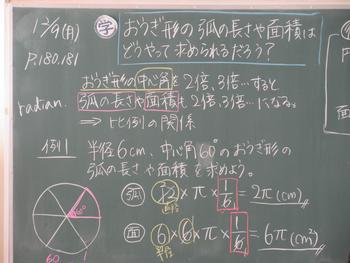 12/9(月)
P.180,181
学 おうぎ形の弧の長さや面積は
どうやって求められるだろう？
おうぎ形の中心角を2倍、3倍…すると
radian. 弧の長さや面積も2倍、3倍…になる。
⇒ 比例の関係
例1 半径6cm、中心角60°のおうぎ形の
弧の長さや面積を求めよう。
弧 12×π×1/6=2π(cm)
直径
面 6×6×π×1/6=6π(cm²)
半径
60°
60
1